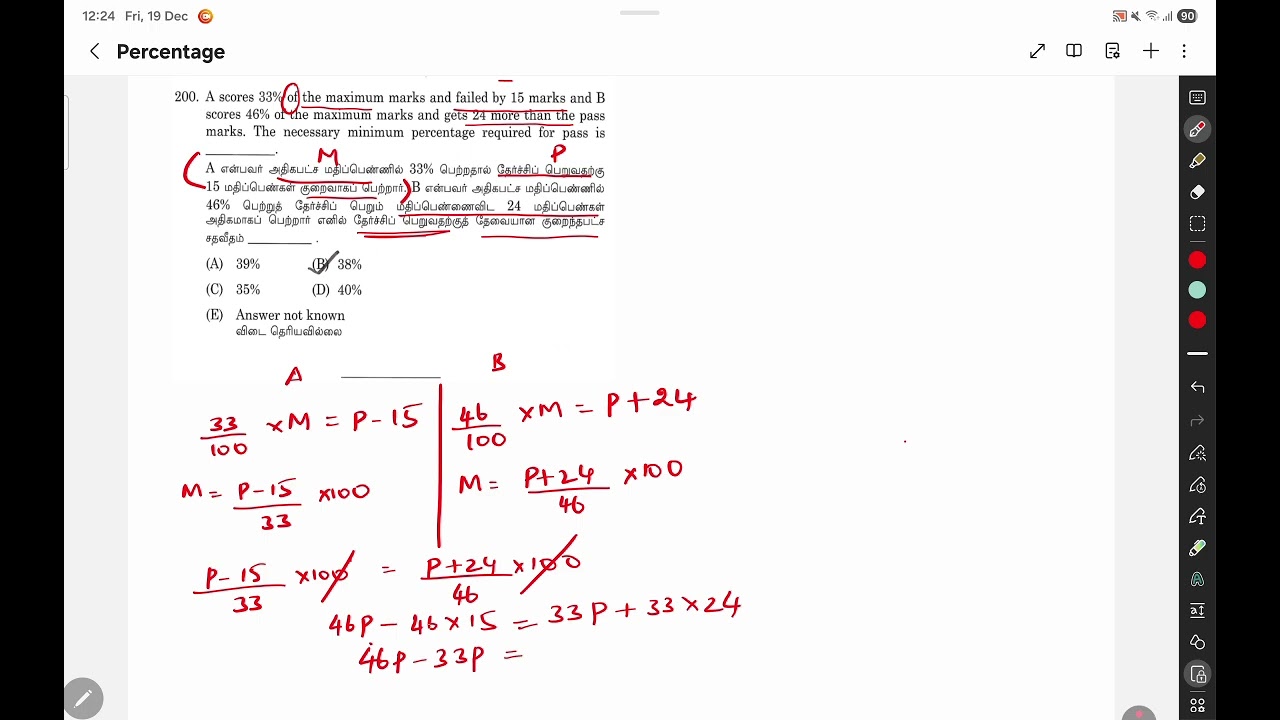 12:24 Fri, 19 Dec
90
Percentage
200. A scores 33% of the maximum marks and failed by 15 marks and B
scores 46% of the maximum marks and gets 24 more than the pass
marks. The necessary minimum percentage required for pass is
____________.
M P
A என்பவர் அதிகபட்ச மதிப்பெண்ணில் 33% பெற்றதால் தேர்ச்சிப் பெறுவதற்கு
15 மதிப்பெண்கள் குறைவாகப் பெற்றார். B என்பவர் அதிகபட்ச மதிப்பெண்ணில்
46% பெற்றுத் தேர்ச்சிப் பெறும் மதிப்பெண்ணைவிட 24 மதிப்பெண்கள்
அதிகமாகப் பெற்றார் எனில் தேர்ச்சிப் பெறுவதற்குத் தேவையான குறைந்தபட்ச
சதவீதம் ____________ .
(A) 39% (B) 38%
(C) 35% (D) 40%
(E) Answer not known
விடை தெரியவில்லை
A B
33/100 × M = P - 15 46/100 × M = P + 24
M = P - 15/33 × 100 M = P + 24/46 × 100
P - 15/33 × 100 = P + 24/46 × 100
46P - 46 × 15 = 33P + 33 × 24
46P - 33P =